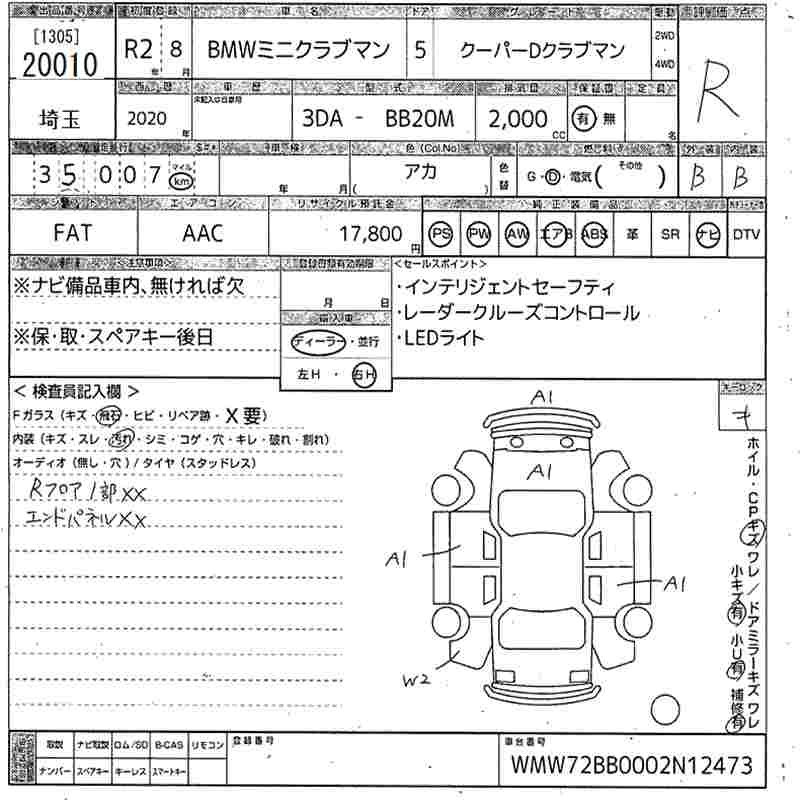 初度登録 車名 ドア グレード 駆動 評価点
[1305]
20010
R2 年 8 月 BMWミニクラブマン 5 クーパーDクラブマン 2WD・4WD R
西暦 車歴 型式 排気量 保証書 定員
未記入は自家用
埼玉 2020 年 3DA - BB20M 2,000 CC 有 無 名
車検 色(Col.No) 燃料 外装 内装
35007 マイル km 年 月 アカ ( ) 色替 G・D・電気( その他 ) B B
シフト エアコン リサイクル預託金 純正装備品
FAT AAC 17,800 円 PS PW AW エアB ABS 革 SR ナビ DTV
<注意事項> 登録書類有効期限 <セールスポイント>
※ナビ備品車内、無ければ欠
月 日
・インテリジェントセーフティ
・レーダークルーズコントロール
輸入車
※保・取・スペアキー後日
ディーラー・並行
・LEDライト
左H・右H
<検査員記入欄>
キーロック
Fガラス(キズ・飛石・ヒビ・リペア跡・X要)
キ
内装(キズ・スレ・汚れ・シミ・コゲ・穴・キレ・破れ・割れ)
オーディオ(無し・穴)/タイヤ(スタッドレス)
Rフロア1部XX
エンドパネルXX
A1
A1
A1
A1
W2
ホイル・CPキズワレ/ドアミラーキズワレ
小キズ有 小U有 補修有
取説 ナビ取説 ロム/SD B-CAS リモコン 登録番号 車台番号
ナンバー スペアキー キーレス スマートキー
WMW72BB0002N12473